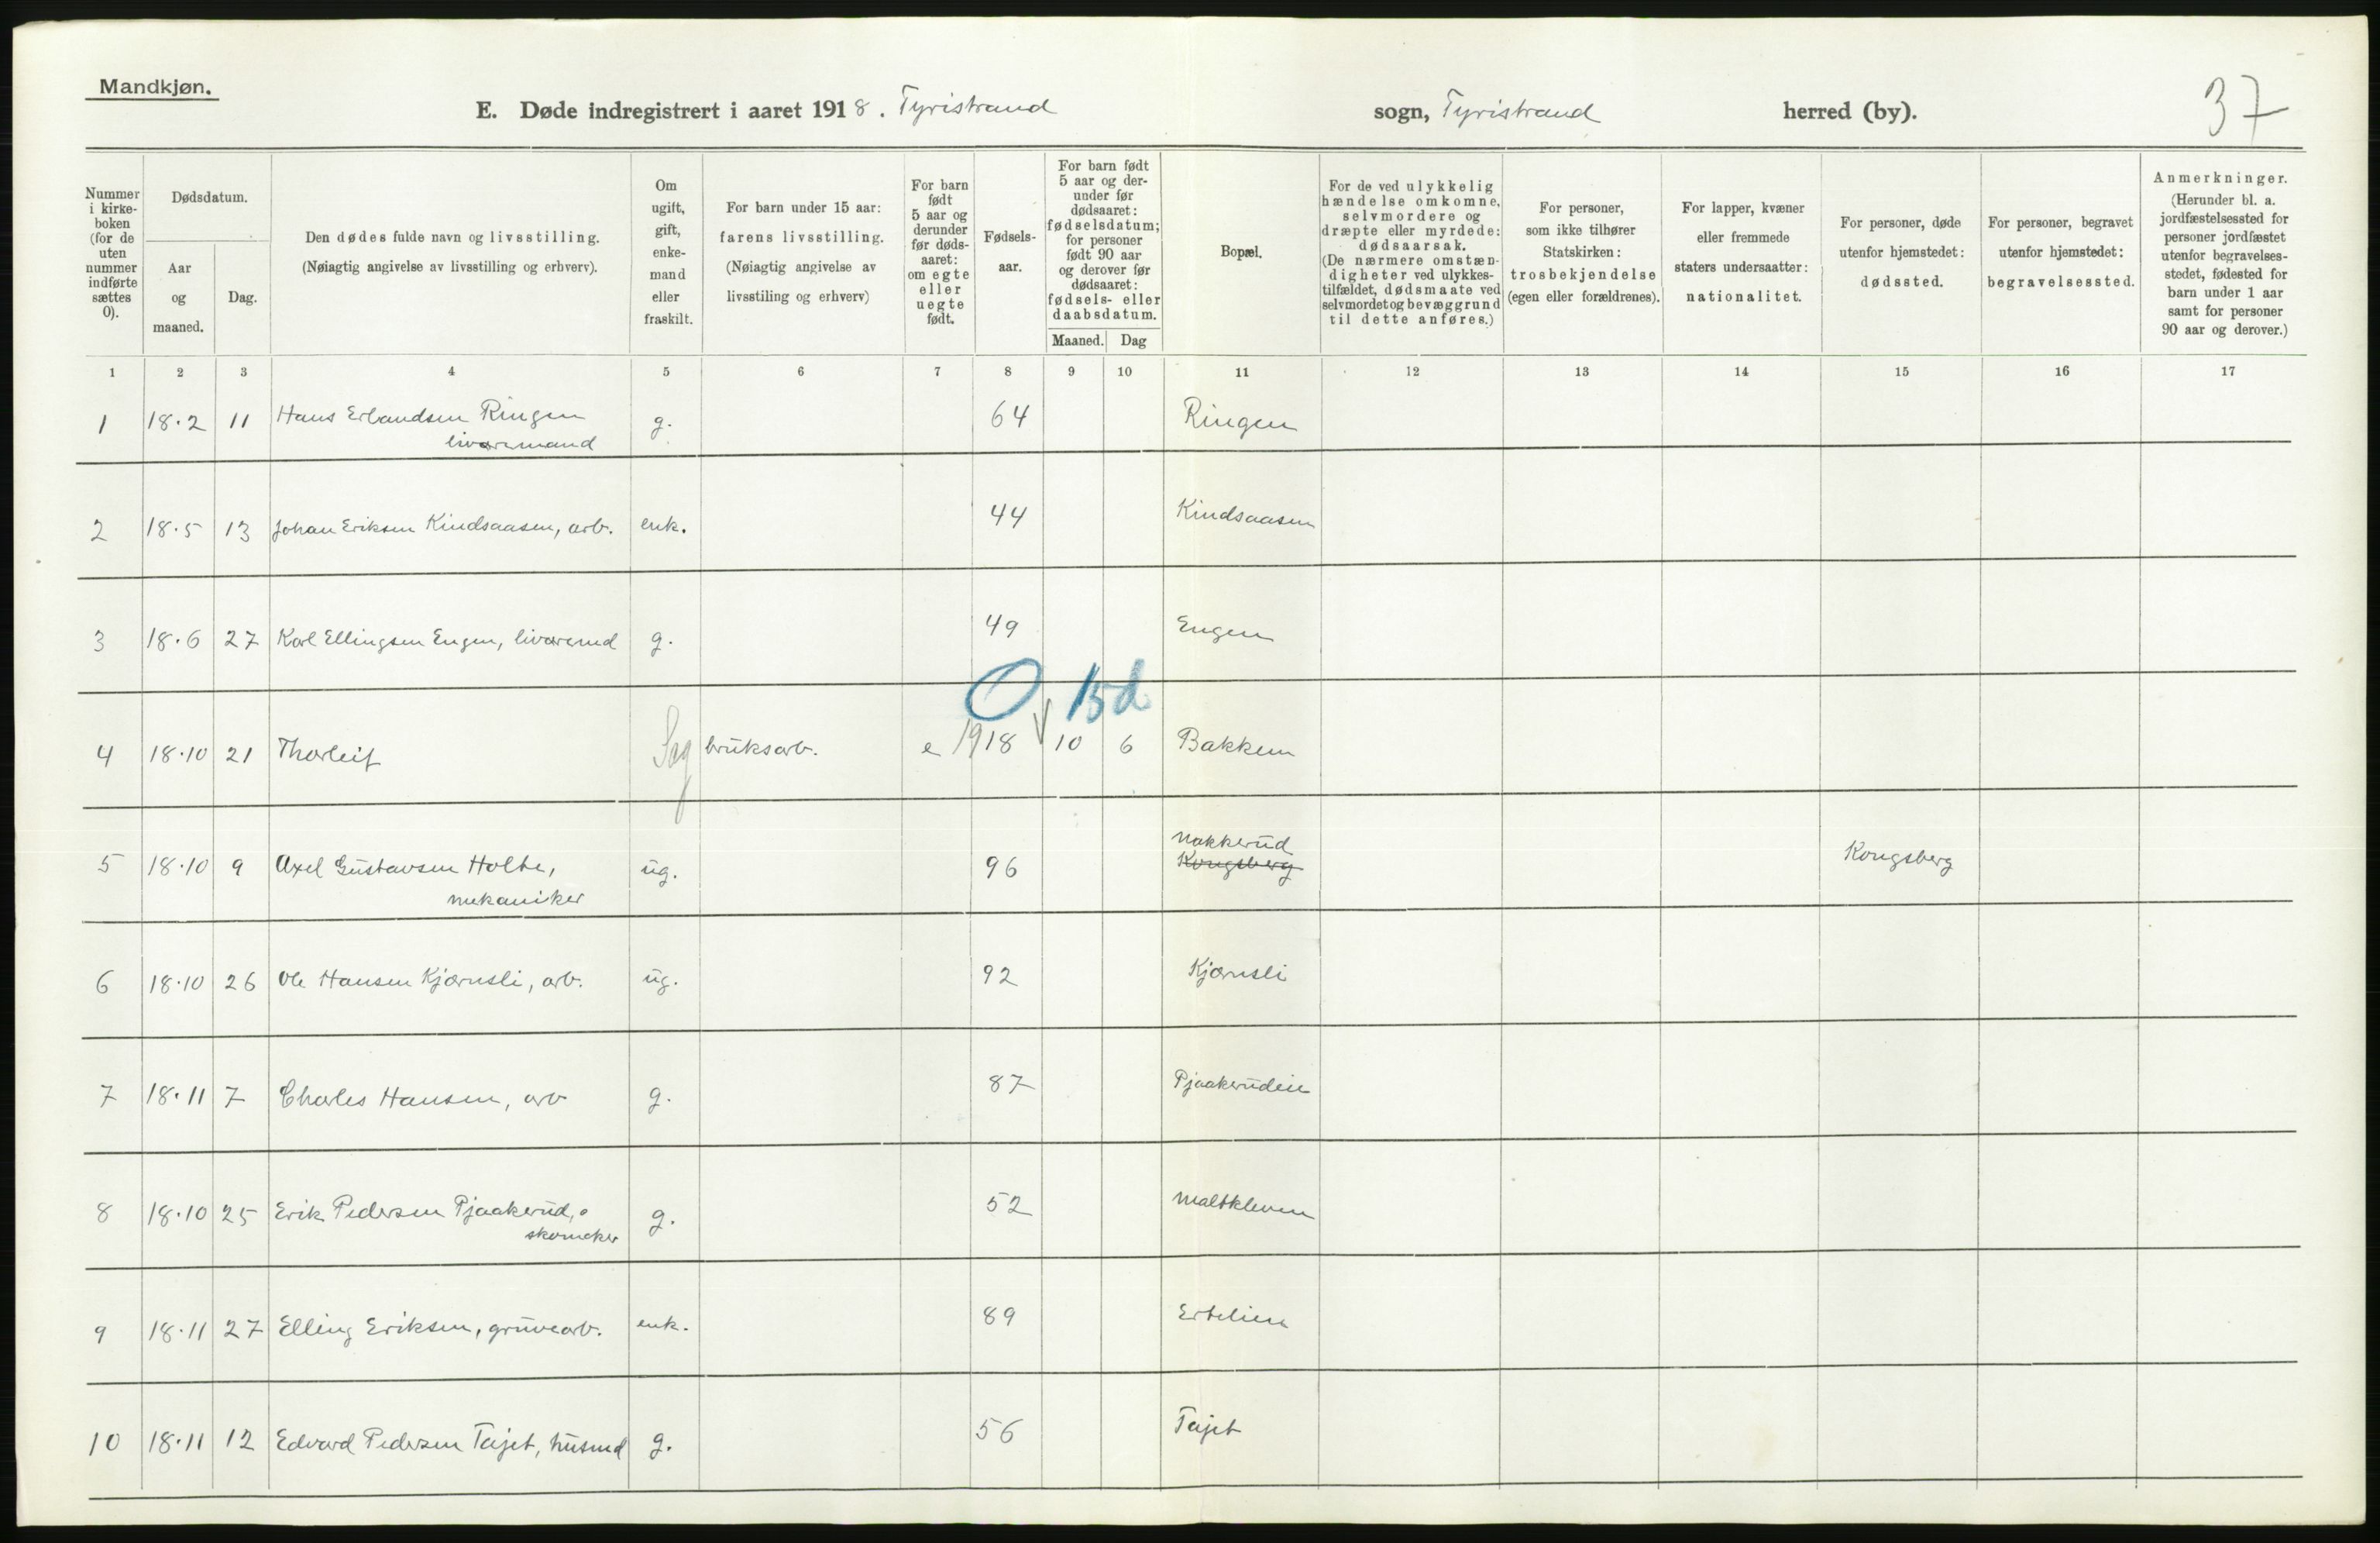 Mandkjøn.
E. Døde indregistrert i aaret 1918. Tyristrand sogn, Tyristrand herred (by). 37
Nummer i kirke- boken (for de uten nummer indførte sættes 0).
Dødsdatum.
Aar og maaned.
Dag.
Den dødes fulde navn og livsstilling.
(Nøiagtig angivelse av livsstilling og erhverv).
Om ugift, gift, enke- mand eller fraskilt.
For barn under 15 aar:
farens livsstilling.
(Nøiagtig angivelse av
livsstiling og erhverv)
For barn født 5 aar og derunder før døds- aaret: om egte eller uegte født.
Fødsels- aar.
For barn født 5 aar og der- under før dødsaaret: fødselsdatum; for personer født 90 aar og derover før dødsaaret: fødsels- eller daabsdatum.
Maaned. Dag
Bopæl.
For de ved ulykkelig hændelse omkomne, selvmordere og dræpte eller myrdede: dødsaarsak. (De nærmere omstæn- digheter ved ulykkes- tilfældet, dødsmaate ved selvmordet og bevæggrund til dette anføres.)
For personer, som ikke tilhører Statskirken: trosbekjendelse (egen eller forældrenes).
For lapper, kvæner eller fremmede staters undersaatter: nationalitet.
For personer, døde utenfor hjemstedet: dødssted.
For personer, begravet utenfor hjemstedet: begravelsessted.
Anmerkninger. (Herunder bl. a. jordfæstelsessted for personer jordfæstet utenfor begravelses- stedet, fødested for barn under 1 aar samt for personer 90 aar og derover.)
1 2 3 4 5 6 7 8 9 10 11 12 13 14 15 16 17
1 18.2 11 Hans Erlandsen Ringen g. 64 Ringen
livøremand
2 18.5 13 Johan Eriksen Kindsaasen, arb. enk. 44 Kindsaasen
3 18.6 27 Karl Ellingsen Engen, livøremd g. 49 Engen
0 15d
4 18.10 21 Thorleif Sag bruksarb. e 1918 10 6 Bakken
Nakkerud
5 18.10 9 Axel Gustavsen Holte, ug. 96 Kongsberg Kongsberg
mekaniker
6 18.10 26 Ole Hansen Kjørnsli, arb. ug. 92 Kjørnsli
7 18.11 7 Charles Hansen, arb g. 87 Pjaakerudeie
8 18.10 25 Erik Pedersen Pjaakerud, g. 52 Maltkleven
skomaker
9 18.11 27 Elling Eriksen, gruvearb. enk. 89 Ertelien
10 18.11 12 Edvard Pedersen Tajet, husmd g. 56 Tajet